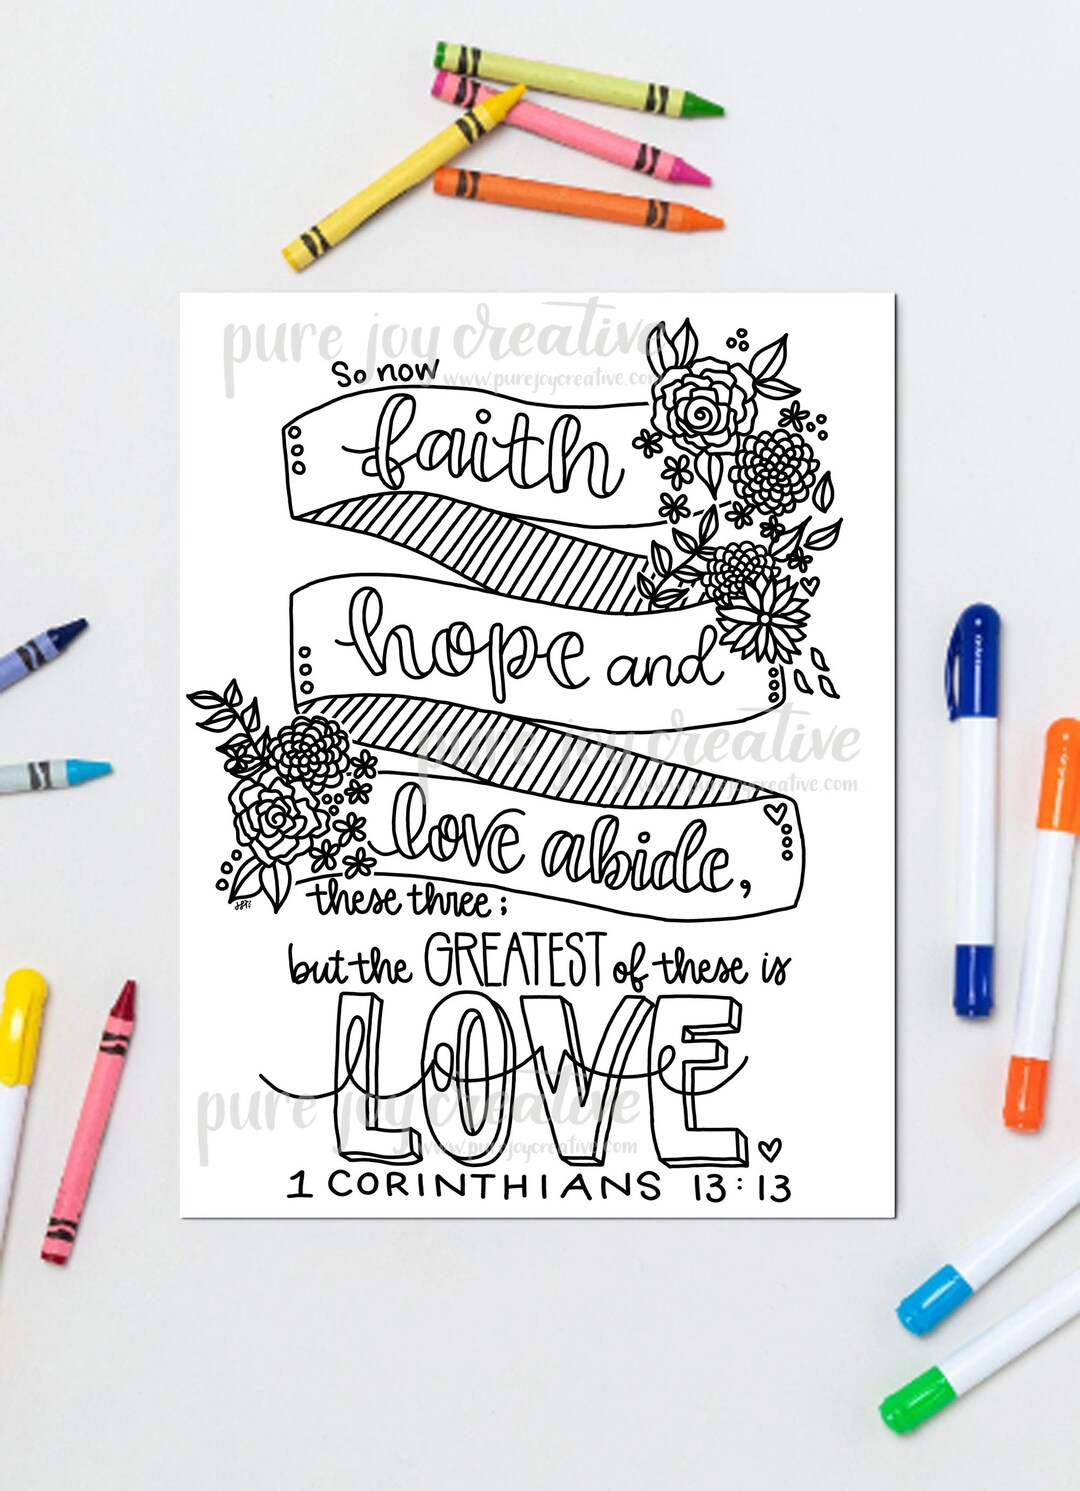 pure joy creative
www.purejoycreative.com
So now
faith
hope and
pure joy creative
www.purejoycreative.com
love abide,
these three;
but the GREATEST of these is
LOVE
pure joy creative
www.purejoycreative.com
1 CORINTHIANS 13:13